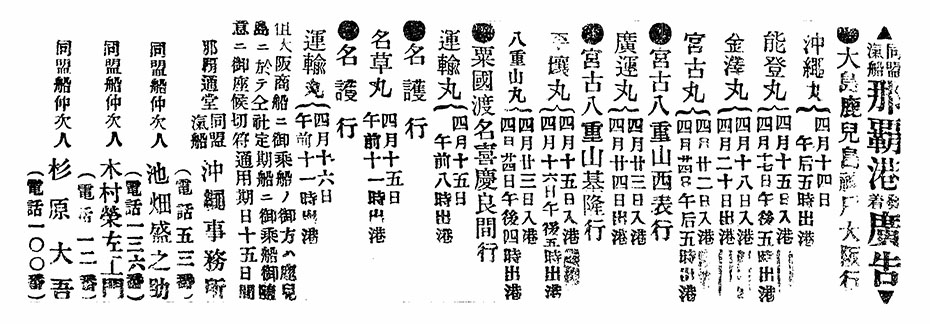 ▲同盟汽船那覇港發着廣告▼
●大島鹿兒島神戸大阪行
沖繩丸{四月十四日午后五時出港
能登丸{四月十五日入港
四月十七日午後五時出港
金澤丸{四月十八日入港
四月二十日出港
宮古丸{四月廿二日入港
四月廿四日午后五時出港
●宮古八重山西表行
廣運丸{四月廿三日入港
四月廿四日出港
●宮古八重山基隆行
平壤丸{四月十五日入港
四月十六日午後五時出港
八重山丸{四月廿三日入港
四月廿四日午後四時出港
●粟國渡名喜慶良間行
運輸丸{四月十五日午前八時出港
●名護行
名草丸 四月十五日午前十一時出港
●名護行
運輸丸{四月十六日午前十一時出港
但大阪商船ニ御乘船ノ御方ハ鹿兒
島ニ於テ仝社定期船ニ御乘船御隨
意ニ御座候切符通用期日十五日間
那覇通堂同盟汽船沖繩事務所
(電話五三番)
同盟船仲次人 池畑盛之助
(電話一三六番)
同盟船仲次人 木村榮左工門
(電話一二番)
同盟船仲次人 杉原大吾
(電話一〇〇番)